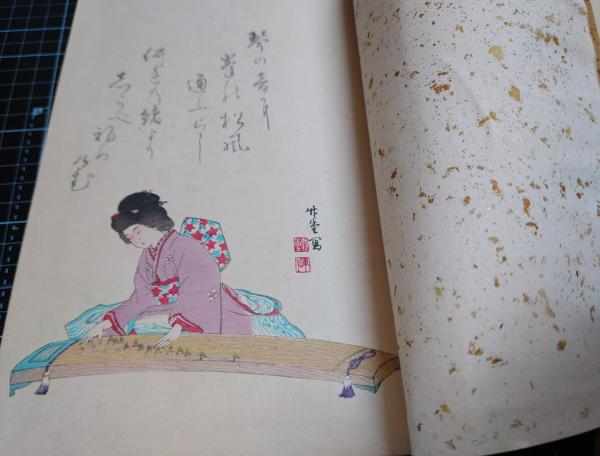 琴の音に
峯の松風
通ふらし
何れの緒より
しらべ初め
けむ
竹堂寫